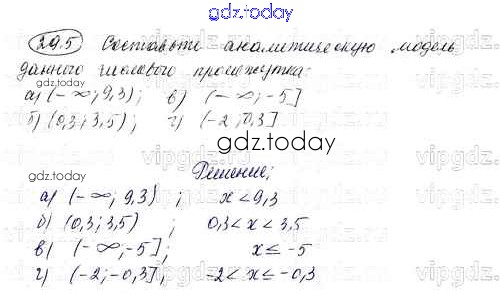 gdz.today
29.5 Составьте аналитическую модель
данного числового промежутка:
а) (-∞; 9,3); в) (-∞; -5]
б) (0,3; 3,5); г) (-2; 0,3]
gdz.today
gdz.today
Решение:
а) (-∞; 9,3) ; x < 9,3
б) (0,3; 3,5) ; 0,3 < x < 3,5
в) (-∞; -5]; x ≤ -5
г) (-2; -0,3]; -2 < x ≤ -0,3